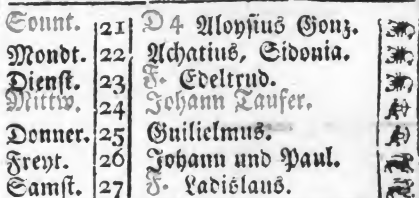 Sount. 21 D 4 Aloysius Gonz.
Mondt. 22 Achatius, Sidonia.
Dienst. 23 F. Edeltrud.
Mittw. 24 Johann Taufer.
Donner. 25 Guilielmus.
Freyt. 26 Johann und Paul.
Samst. 27 F. Ladislaus.